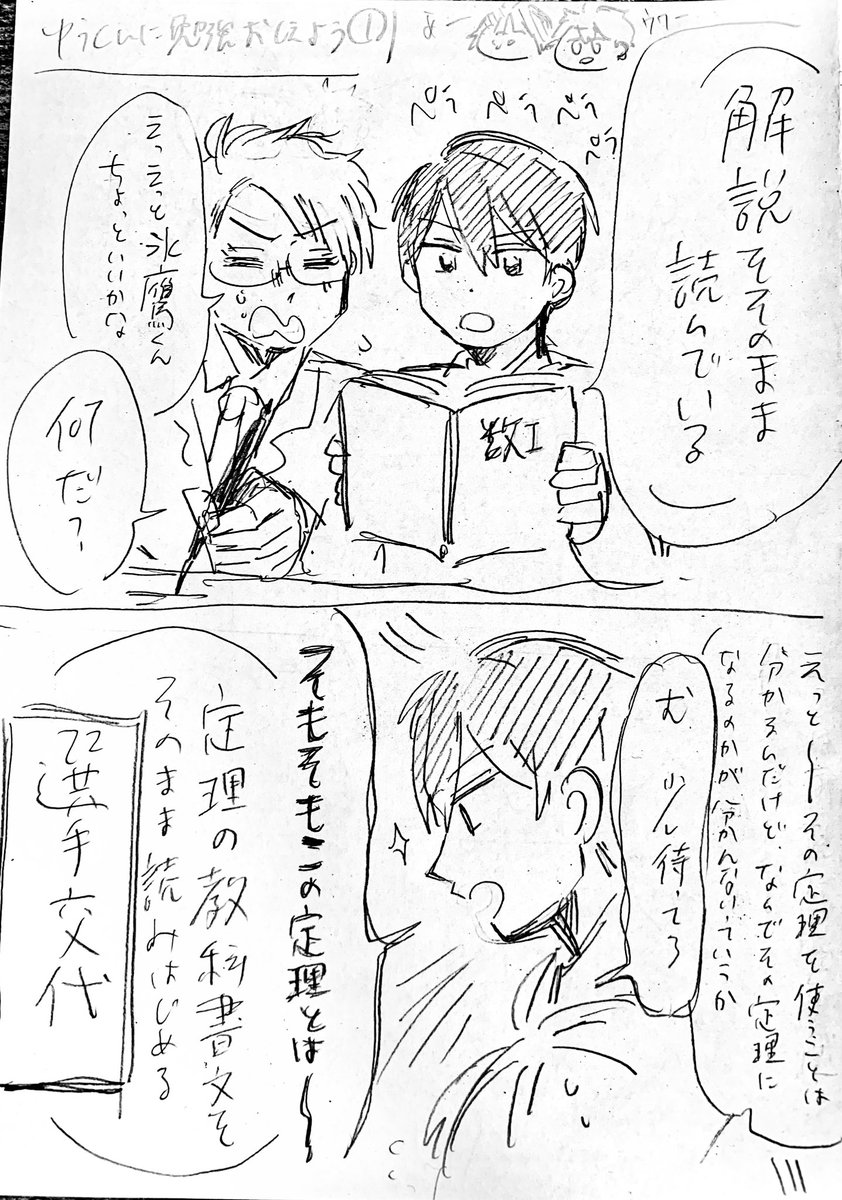 ゆうくんに勉強おしえよう①
ウワー
解説をそのまま
読んでいる
ぺら
ぺら
ぺら
ぺら
えっえっと氷鷹くん
ちょっといいかな
何だ?
数I
えっと〜その定理を使うことは
分かるんだけど、なんでその定理に
なるのかが分かんないっていうか
む 少し待ってろ
そもそもこの定理とは〜
定理の教科書文を
そのまま読みはじめる
選手交代